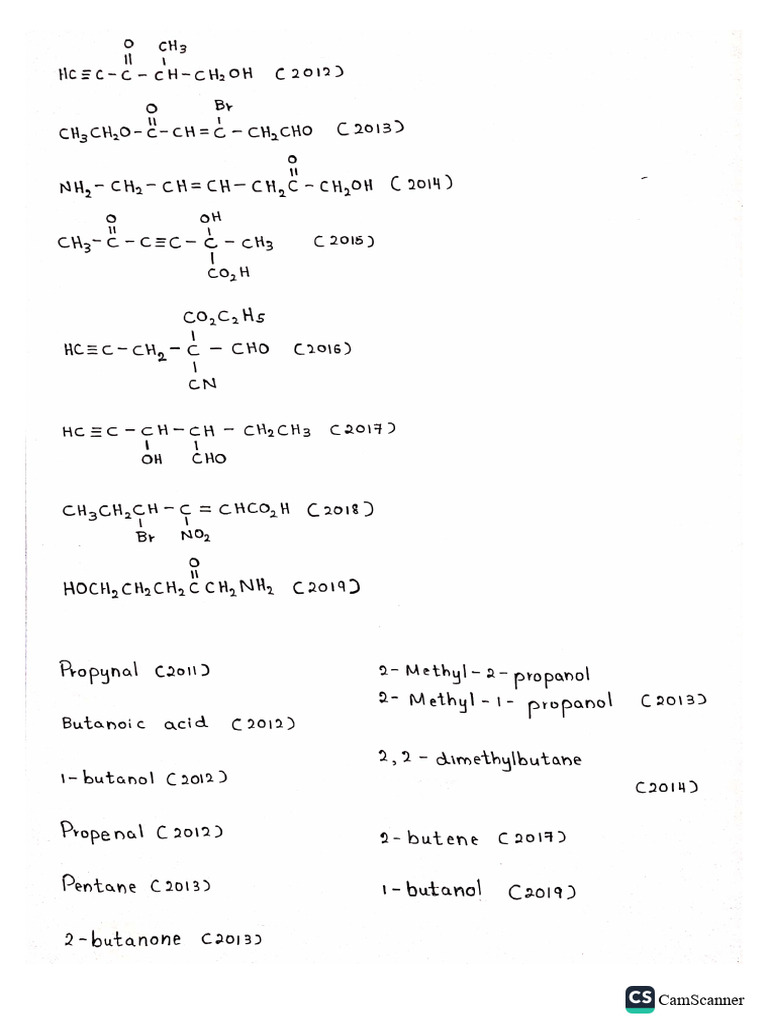 O CH3
HC≡C-C-CH-CH2OH (2012)
O Br
CH3CH2O-C-CH=C-CH2CHO (2013)
O
NH2-CH2-CH=CH-CH2C-CH2OH (2014)
O OH
CH3-C-C≡C-C-CH3 (2015)
CO2H
CO2C2H5
HC≡C-CH2-C-CHO (2016)
CN
HC≡C-CH-CH-CH2CH3 (2017)
OH CHO
CH3CH2CH-C=CHCO2H (2018)
Br NO2
O
HOCH2CH2CH2CCH2NH2 (2019)
Propynal (2011)
Butanoic acid (2012)
1-butanol (2012)
Propenal (2012)
Pentane (2013)
2-butanone (2013)
2-Methyl-2-propanol
2-Methyl-1-propanol (2013)
2,2-dimethylbutane
(2014)
2-butene (2017)
1-butanol (2019)
CS CamScanner